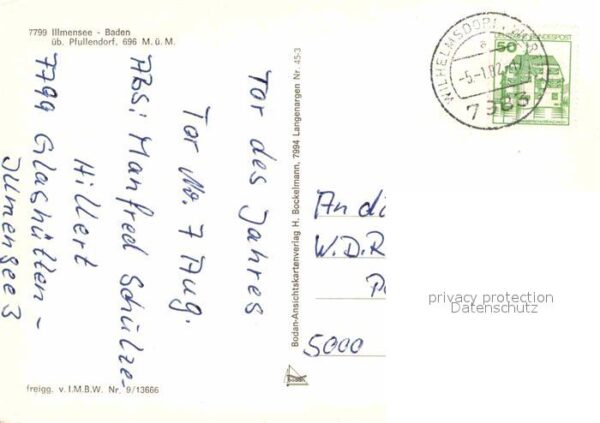 7799 Illmensee - Baden
üb. Pfullendorf. 696 M. ü. M.
Tor des Jahres
Tor No. 7 Aug.
Absi Manfred Schülze-
Hillert
7799 Glashütten-
Illmensee 3
freigg. v. I.M.B.W. Nr. 9/13666
Bodan-Ansichtskartenverlag H. Bockelmann, 7994 Langenargen Nr. 45-3
WILHELMSDORF
a
-5-1.82-17
7983
50
BUNDESPOST
An di
W.D.R
5000
privacy protection
Datenschutz